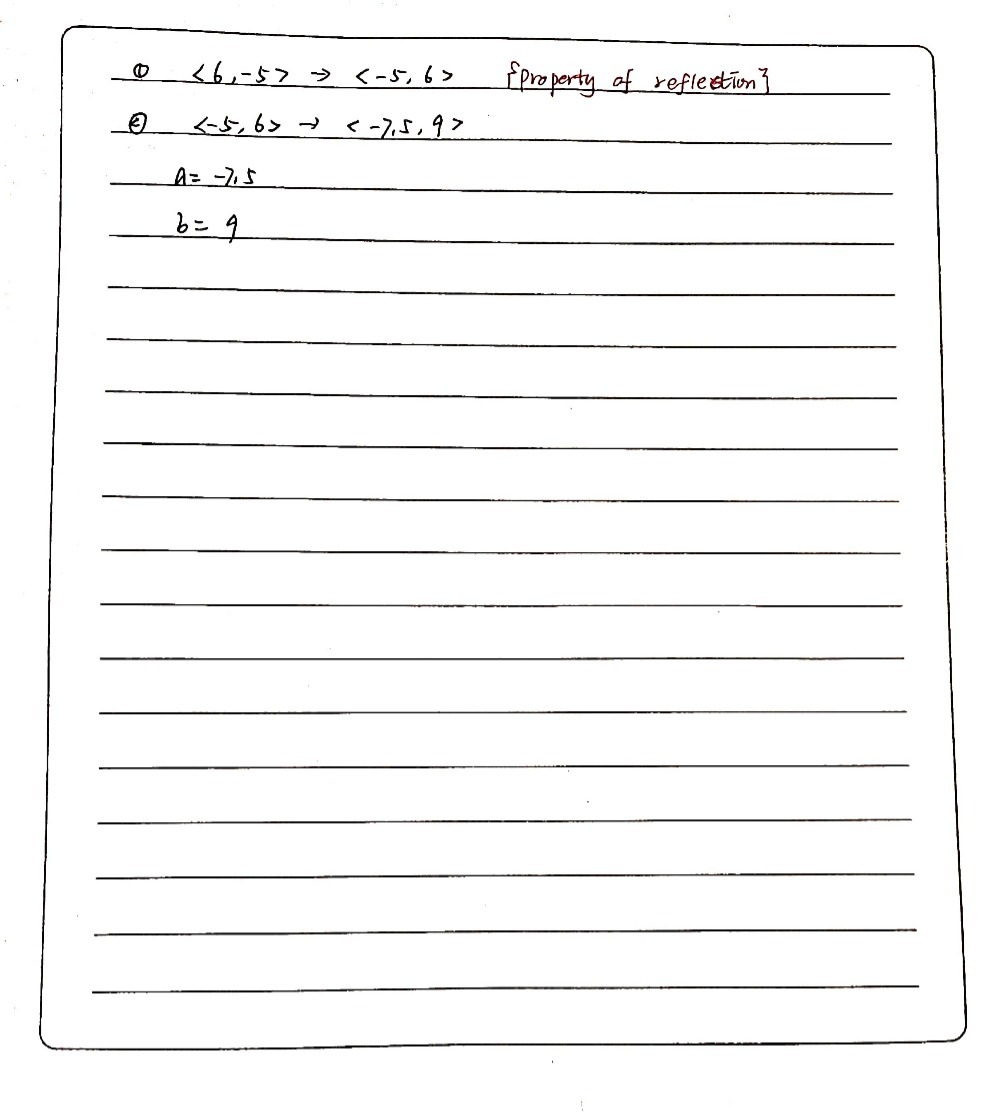 ① <6,-5> → <-5,6> {property of reflection}
② <-5,6> → <-7.5,9>
a= -7.5
b= 9